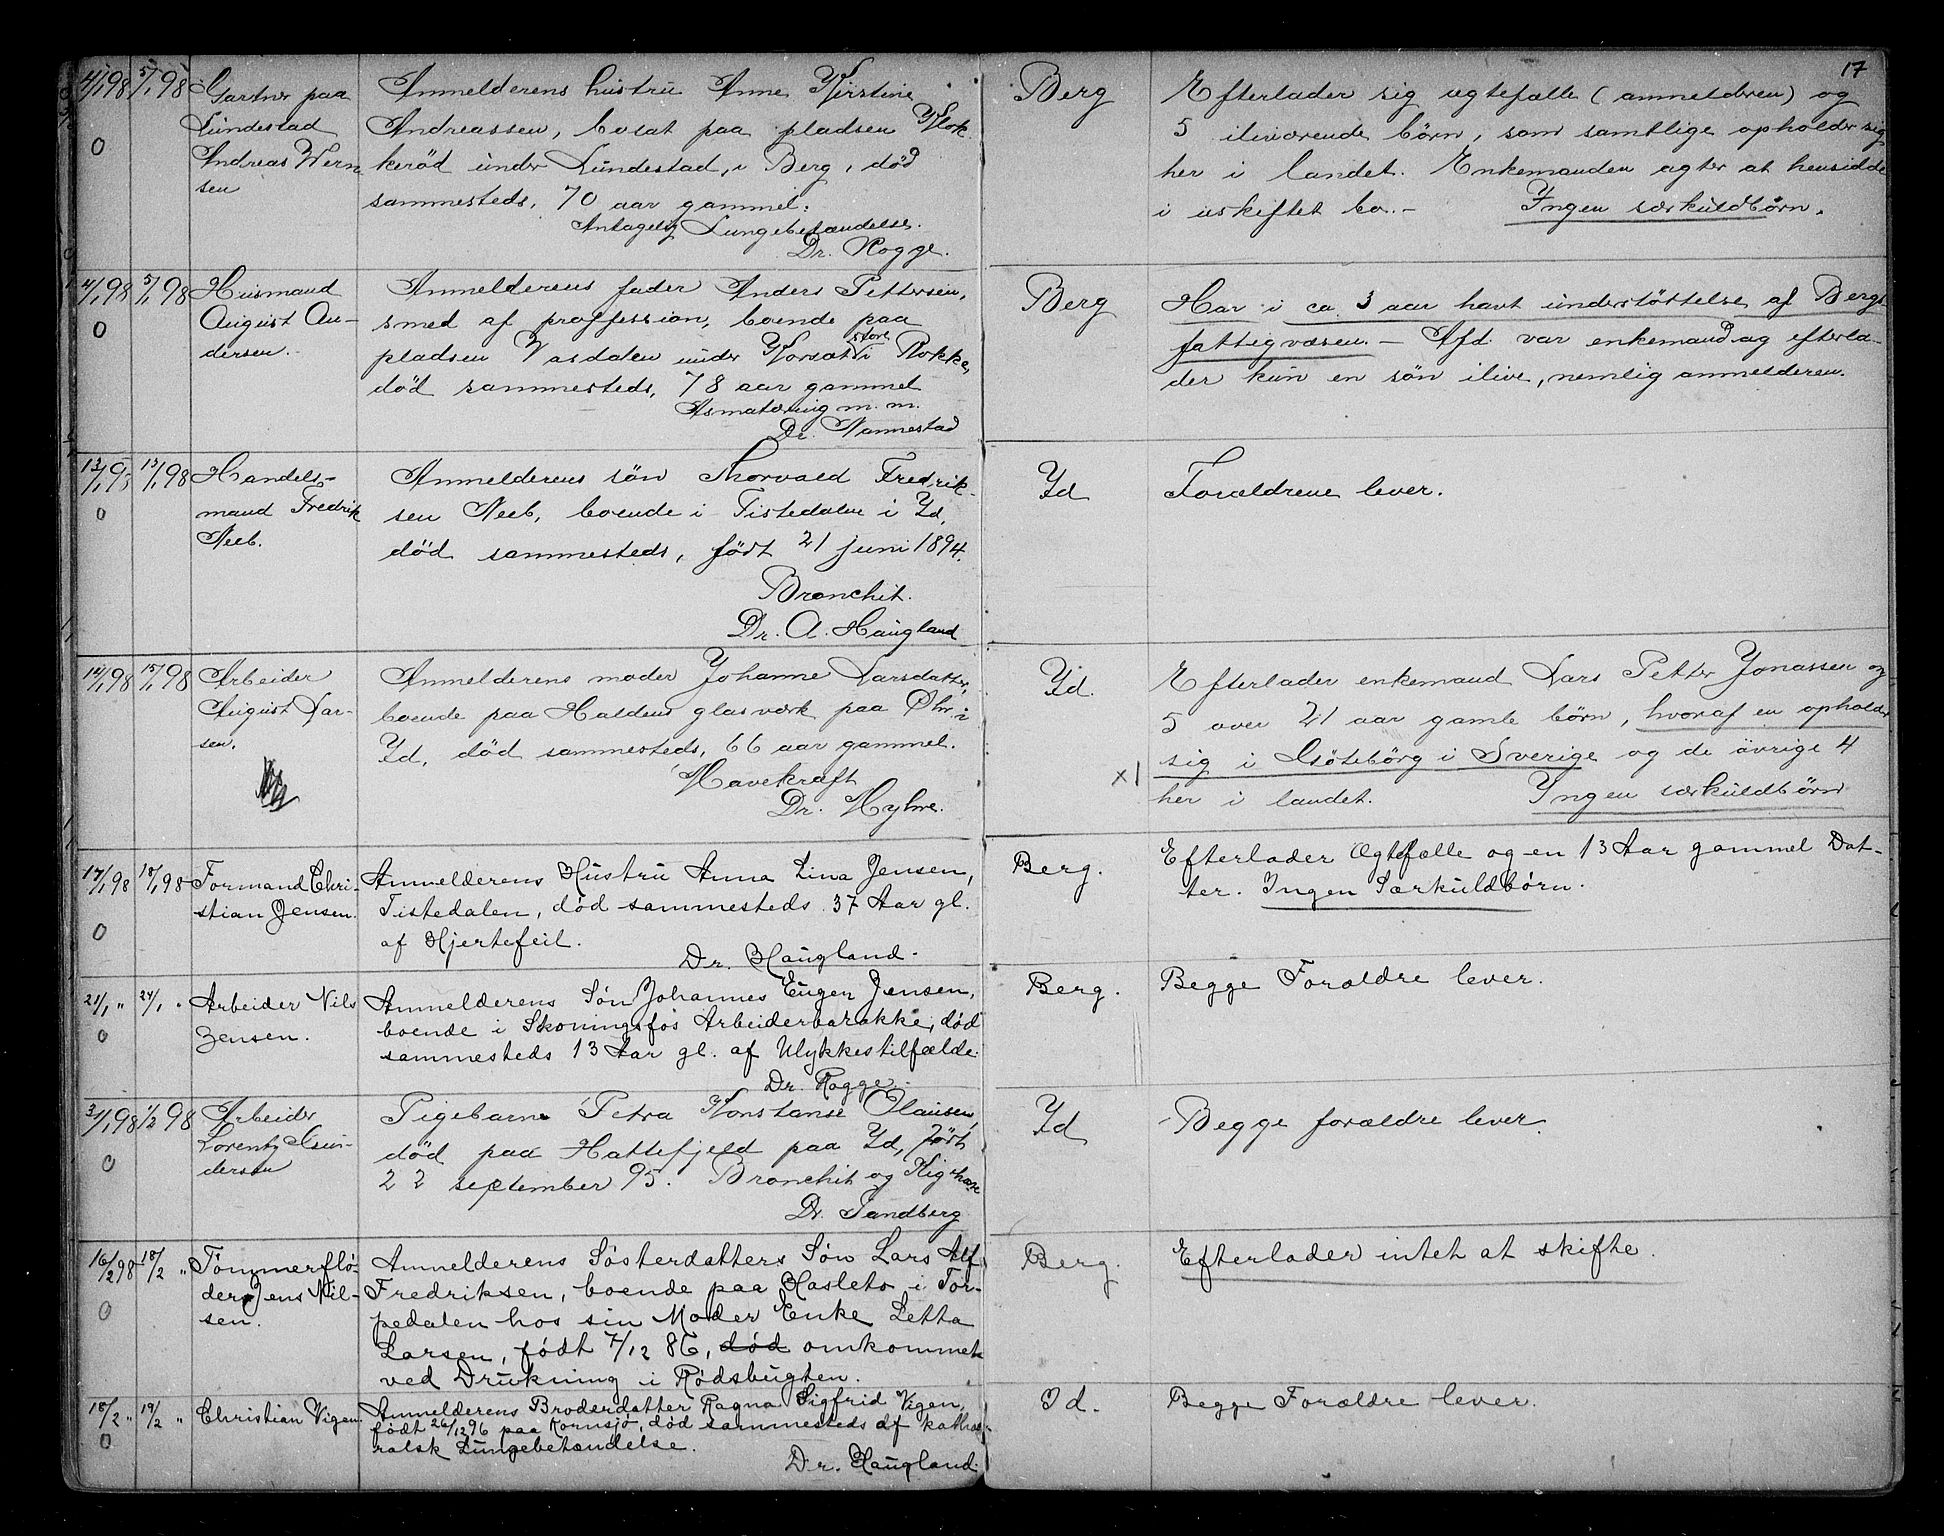 17
4/1 98 5/1 98 Gartner paa
Lundestad
Andreas Wern
sen
0
Anmelderens hustru Anne Kirstine
Andreassen, bosat paa pladsen Klok
keröd under Lundestad, i Berg, död
sammesteds, 70 aar gammel.
Antagelig Lungebetændelse.
Dr. Rogge.
Berg
Efterlader sig ægtefælle (anmelderen) og
5 ilivværende börn, som samtlige opholder sig
her i landet. Enkemanden agter at hensidde
i uskiftet bo. –
Ingen særkuldbörn.
4/1 98 5/1 98 Husmand
August An-
dersen.
0
Anmelderens fader Anders Pettersen,
smed af proffession, boende paa
pladsen Vasdalen under store Korsæt i Rokke,
död sammesteds, 78 aar gammel
Asmatæring m. m.
Dr. Nannestad
Berg
Har i ca 3 aar havt understöttelse af Bergs
fattigvæsen. – Afd. var enkemand og efterla-
der kun en sön ilive, nemlig anmelderen.
13/1 98 13/1 98 Handels-
mand Fredrik
Neeb.
0
Anmelderens sön Thorvald Fredrik-
sen Neeb, boende i Tistedalen i Id,
död sammesteds, födt 21 juni 1894.
Bronchit.
Dr. A. Haugland
Id
Forældrene lever.
14/1 98 15/1 98 Arbeider
August Lar-
sen.
Anmelderens moder Johanne Larsdatter,
boende paa Haldens glasværk paa Öhr i
Id, död sammesteds, 66 aar gammel.
Mavekræft
Dr. Myhre.
Id.
x1
Efterlader enkemand Lars Petter Jonassen og
5 over 21 aar gamle börn, hvoraf en opholder
sig i Göteborg i Sverige og de övrige 4
her i landet.
Ingen særkuldbörn
17/1 98 18/1 98 Formand Chri-
stian Jensen.
0
Anmelderens Hustru Anna Lina Jensen,
Tistedalen, död sammesteds 37 Aar gl.
af Hjertefeil.
Dr. Haugland.
Berg.
Efterlader Ægtefælle og en 13 Aar gammel Dat-
ter. Ingen Særkuldbörn.
21/1 " 24/1 " Arbeider Nils
Jensen.
0
Anmelderens Sön Johannes Eugen Jensen,
boende i Skoningsfos Arbeiderbarakke, död
sammesteds 13 Aar gl. af Ulykkestilfælde.
Dr. Rogge.
Berg.
Begge Forældre lever.
31/1 98 1/2 98 Arbeider
Lorentz Gun-
dersen
0
Pigebarn Petra Konstanse Olausen,
död paa Hattefjeld paa Id, födt
22 september 95. Bronchit og Kighoste
Dr. Sandberg
Id
Begge forældre lever.
16/2 98 18/2 " Tömmerflö-
der Jens Nil-
sen.
0
Anmelderens Sösterdatters Sön Lars Alf
Fredriksen, boende paa Hasleto i Tor-
pedalen hos sin Moder Enke Letta
Larsen, födt 7/12 86, död omkommet
ved Drukning i Rödsbugten.
Berg.
Efterlader intet at skifte.
18/2 " 19/2 " Christian Vigen
0
Anmelderens Broderdatter Ragna Sigfrid Vigen,
födt 26/12 96 paa Kornsjö, död sammesteds af kathar-
ralsk Lungebetændelse.
Dr. Haugland.
Id.
Begge Forældre lever.